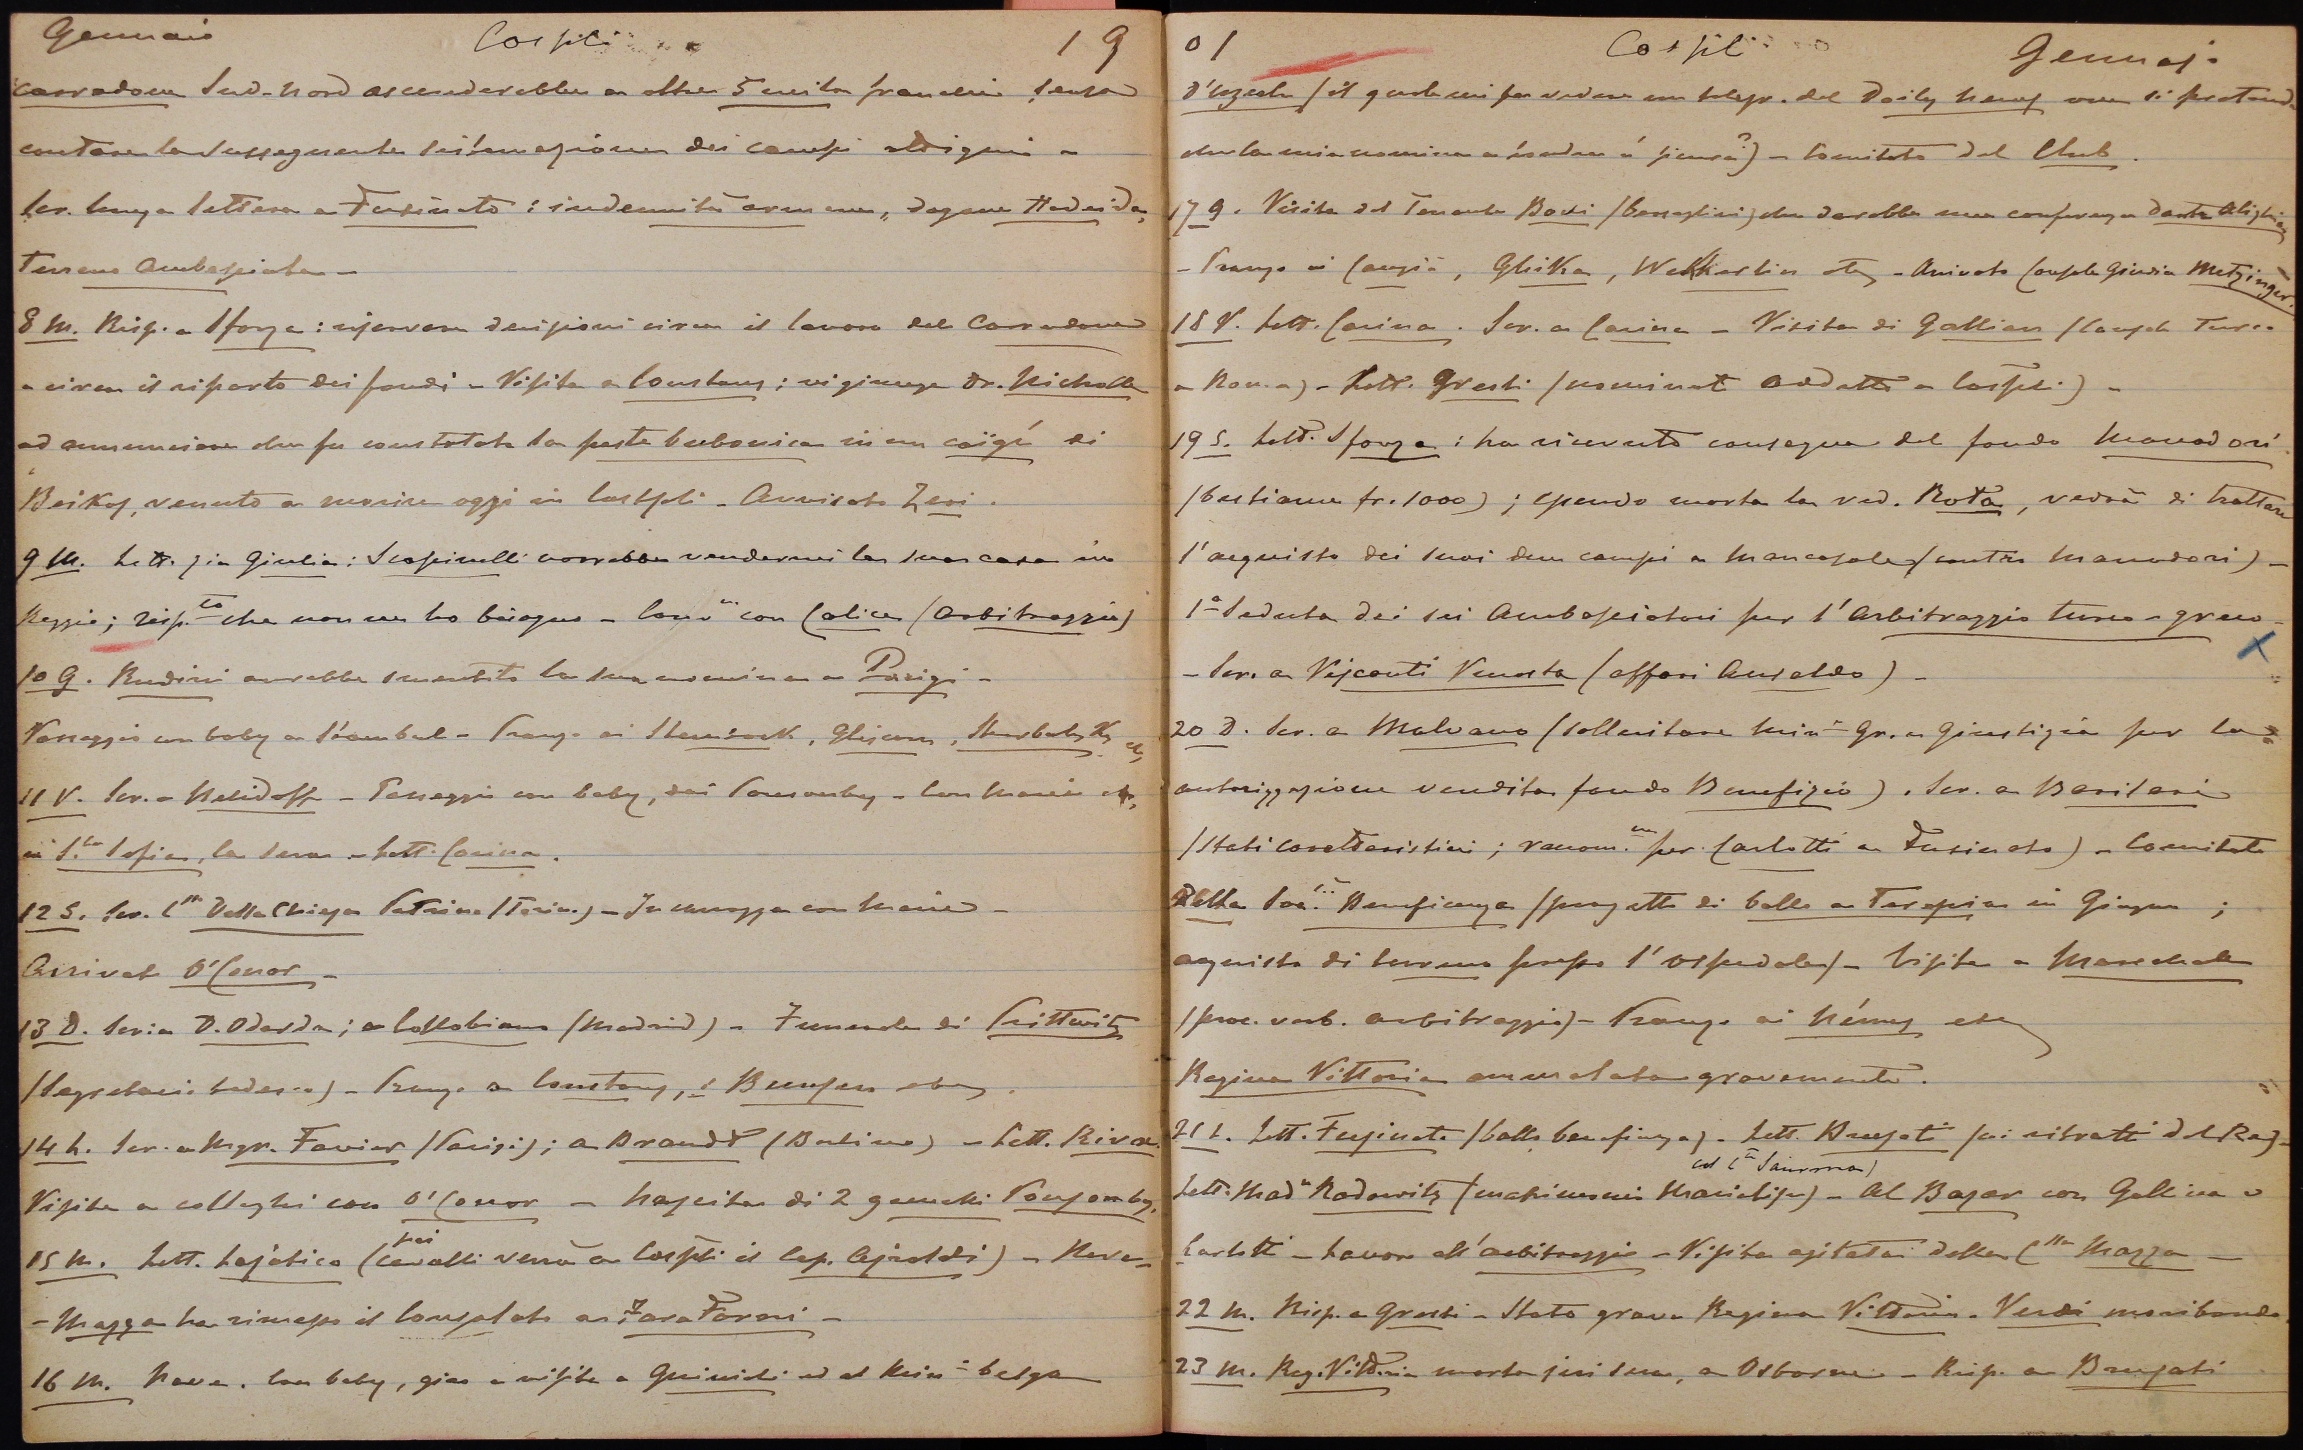 Gennaio Cospli 19
carradone Sud-Nord ascenderebbe a oltre 5 mila franchi senza
contare la susseguente sistemazione dei campi attigui -
Scr. lunga lettera a Fusinato: indennità armene, dogane Hodeida,
Terreno Ambasciata -
8 M. Risp. a Sforza: riservare decisioni circa il lavoro del Carradone
e circa il riparto dei fondi - Visita a Constans; vi giunge Dr. Nicholle
ad annunciare che fu constatata la peste bubonica in un caïgí di
Beikos, venuto a morire oggi in Costpli - Avvisato Zeri.
9 M. Lett. zia Giulia: Scapinelli vorrebbe vendermi la sua casa in
Reggio; risp.to che non ne ho bisogno - Com.ni con Calice (Arbitraggio)
10 G. Rudini avrebbe smentito la sua nomina a Parigi -
Passeggio con baby a Stambul - Pranzo ai Stembock, Ghizeon, Sherbatsky, etc,
11 V. Scr. a Nelidoff - Passeggio con baby, dai Ponsonby - Con Marie etc,
in S.ta Sofia, la sera - Lett. Carina.
12 S. Scr. C.ssa Della Chiesa Patrina (Torino) - In carrozza con Marie -
Arrivato O'Conor -
13 D. Scr. a D. Odarda; a Collobiano (Madrid) - Funerale di Prittwitz
(Segretario tedesco) - Pranzo a Constans, i Bunsen etc,
14 L. Scr. a Mgr. Favier (Parigi); a Brandt (Berlino) - Lett. Riva.
Visita a colleghi con O'Conor - Nascita di 2 gemelli Ponsonby.
15 M. Lett. Lajatico (pei cavalli verrà a Costpli il Cap. Ajroldi) - Neve -
- Mazza ha rimesso il Consolato a Zara Forni -
16 M. Neve. Con baby, giro a visita a Guiniedi ed al Min.o belga
01 Cospli Gennajo
d'Uzeda (il quale mi fa vedere un telegr. del Daily News ove si pretende
che la mia nomina a Londra è sicura?) - Comitato del Club.
17 G. Visita del Tenente Bovi (bersaglieri) che darebbe una conferenza Dante Alighieri
- Pranzo ai Cangià, Ghika, Wekkerlin etc, - Arrivato Console Giudice Metzinger.
18 V. Lett. Carina. Scr. a Carina - Visita di Gallian (Console Turco
a Roma) - Lett. Gresti (nominato Addetto a Costpli.) -
19 S. Lett. Sforza: ha ricevuto consegna del fondo Manodori
(bestiame fr. 1000); essendo morta la ved. Rota, vedrà di trattare
l'acquisto dei suoi due campi a Mancasale (contro Manodori) -
1a Seduta dei sei Ambasciatori per l'Arbitraggio turco-greco -
- Scr. a Visconti Venosta (affari Ansaldo) -
20 D. Scr. a Malvano (sollecitare Min.o Gr. e Giustizia per la
autorizzazione vendita fondo Benefizio). Scr. a Barilari
(Stati caratteristici; raccom.ne per Carlotti a Fusinato) - Comitato
della Soc. Beneficenza (progetto di ballo a Tarapia in Giugno;
acquisto di terreno presso l'ospedale) - Visita a Mareschalchi
(proc. verb. arbitraggio) - Pranzo ai Némes etc,
Regina Vittoria ammalata gravemente.
21 L. Lett. Fusinato (ballo beneficenza). Lett. Brusati (ai ritratti del Re) -
Lett. Mad.e Radowitz (matrimonio Marielise) col C.te Saurma) - Al Bazar con Gallina e
Carlotti - Lavoro all'arbitraggio - Visita agitata della C.ssa Mazza -
22 M. Risp. a Gresti - Stato grave Regina Vittoria. Verdi moribondo.
23 M. Reg. Vittoria morta jeri sera, a Osborne - Risp. a Brusati